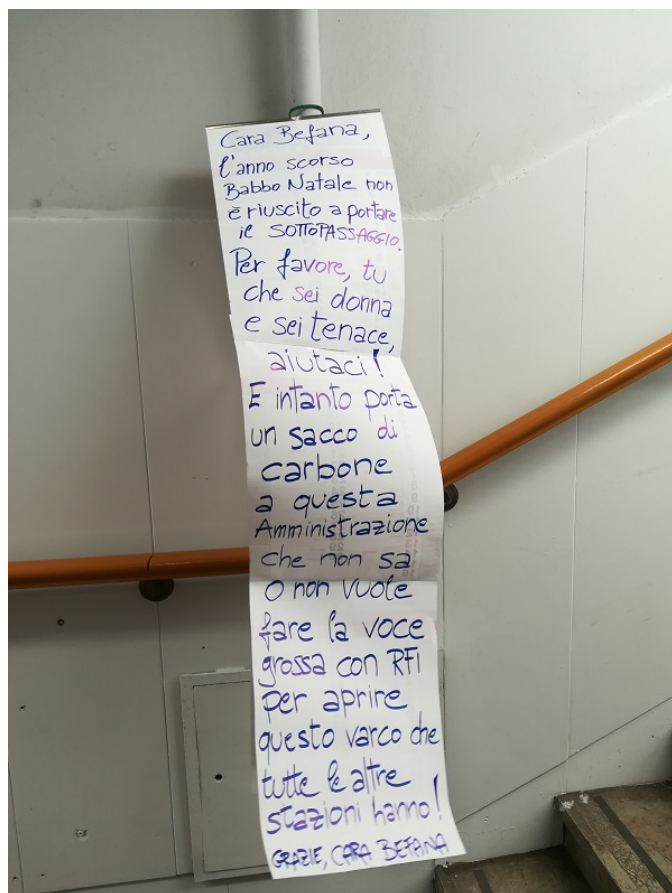 Cara Befana,
l'anno scorso
Babbo Natale non
è riuscito a portare
il SOTTOPASSAGGIO.
Per favore, tu
che sei donna
e sei tenace,
aiutaci!
E intanto porta
un sacco di
carbone
a questa
Amministrazione
che non sa
o non vuole
fare la voce
grossa con RFI
per aprire
questo varco che
tutte le altre
stazioni hanno!
GRAZIE, CARA BEFANA